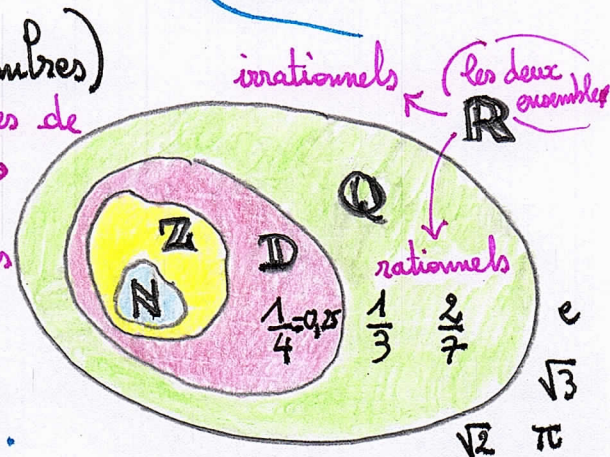 mbres)
es de
irrationnels
(les deux
ensembles)
ℝ
s
ℚ
ℤ
𝔻
rationnels
ℕ
1/4=0,25
1/3
2/7
e
√3
√2
π